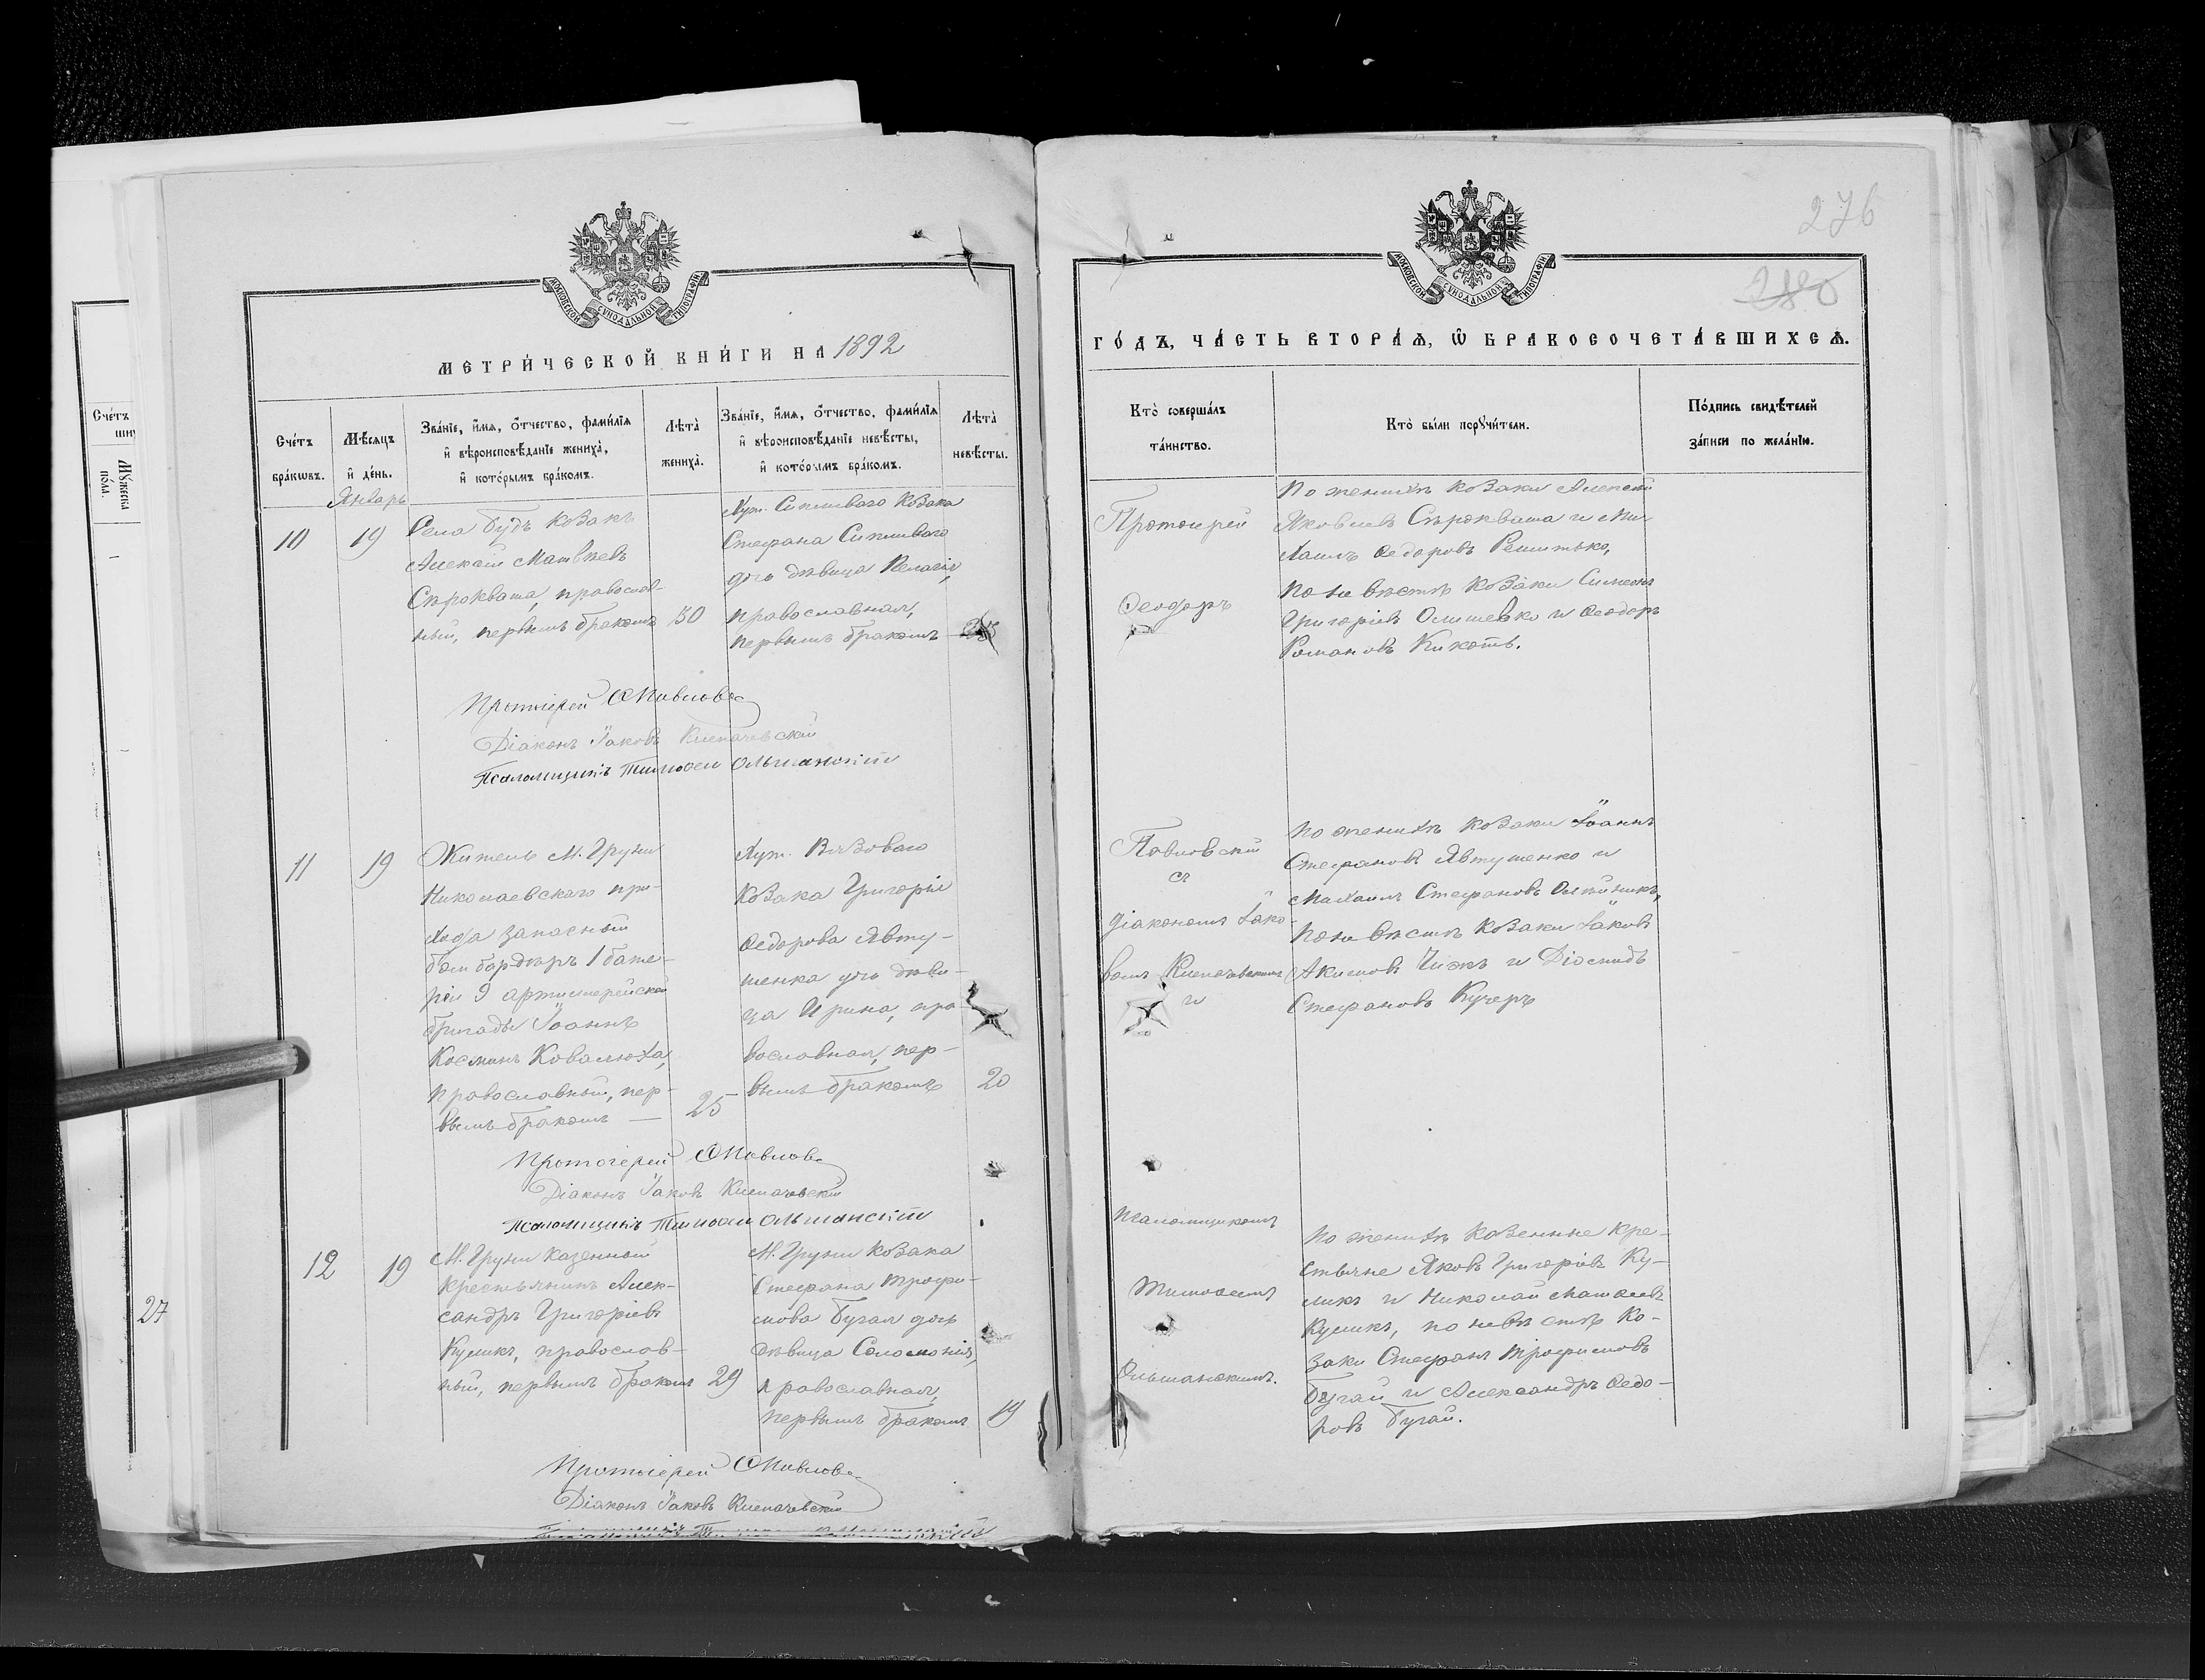 МОСКОВСКОЙ СѴНОДАЛЬНОЙ ТИПОГРАФІИ
МЕТРИ́ЧЕСКОЙ КНИ́ГИ НА 1892
Сче́тъ бра́кѡвъ.
Мѣ́сяцъ и҆ де́нь.
Зва́нїе, и҆́мѧ, ѻ҆́тчество, фами́лїѧ и҆ вѣроисповѣ́данїе жениха̀, и҆ кото́рымъ бра́комъ.
Лѣта̀ жениха̀.
Зва́нїе, и҆́мѧ, ѻ҆́тчество, фами́лїѧ и҆ вѣроисповѣ́данїе невѣ́сты, и҆ кото́рымъ бра́комъ.
Лѣта̀ невѣ́сты.
Январь
10
19
Села Будъ козакъ
Алексій Матвѣевъ
Сѣроквата, православ-
ный, первымъ бракомъ
30
Степана
дочь дѣвица Пелагія,
православная,
первымъ бракомъ
Протоіерей Ѳ Павловс
Діаконъ Іаковъ Клепачевскій
Псаломщикъ Тимоѳеи Ольшанскій
11
19
Житель М. Груни
Николаевскаго при-
хода запасный
бомбардиръ 1 бате-
реи 9 артиллерейской
бригады Іоаннъ
Косминъ Ковалюха,
православный, пер-
вымъ бракомъ —
25
Хут. Вязоваго
козака Григорія
Ѳедорова Явту-
шенка дочь дѣви-
ца Ирина, пра-
вославная, пер-
вымъ бракомъ
20
Протоіерей Ѳ Павловс
Діаконъ Іаковъ Клепачевскій
Псаломщикъ Тимоѳеи Ольшанскій
12
19
М. Груни казенный
крестьянинъ Алек-
сандръ Григоріевъ
Куликъ, православ-
ный, первымъ бракомъ
29
М. Груни козака
Стефана Трофи-
мова Бугая дочь
дѣвица Соломонія,
православная,
первымъ бракомъ
19
Протоіерей Ѳ Павловс
Діаконъ Іаковъ Клепачевскій
276
280
МОСКОВСКОЙ СѴНОДАЛЬНОЙ ТИПОГРАФІИ
ГО́ДЪ, ЧА́СТЬ ВТОРА́Ѧ, Ѽ БРАКОСОЧЕТА́ВШИХСѦ.
Кто̀ соверша́лъ та́инство.
Кто̀ бы́ли порꙋчи́тели.
По́дпись свидѣ́телей за́писи по жела́нїю.
Протоіерей
Ѳеодоръ
Павловскій
съ
діакономъ Іако-
вомъ Клепачевскимъ
и
псаломщикомъ
Тимоѳеемъ
Ольшанскимъ.
По женихѣ козаки Алексій
Яковлевъ Сѣроквата и Ми-
хаилъ Ѳедоровъ Решитько,
по невѣстѣ козаки Симеонъ
Григоріевъ Олишевко и Ѳеодоръ
Романовъ Кикоть.
По женихѣ козаки Іоаннъ
Стефановъ Явтушенко и
Михаилъ Стефановъ Олѣйникъ,
по невѣстѣ козаки Іаковъ
Акимовъ Чижъ и Діомидъ
Стефановъ Кучеръ
По женихѣ козенные кре-
стьяне Яковъ Григоріевъ Ку-
ликъ и Николай Матѳеевъ
Куликъ, по невѣстѣ ко-
заки Стефанъ Трофимовъ
Бугай и Александръ Ѳедо-
ровъ Бугай.
Сче́тъ
Мꙋ́жеска по́ла.
27